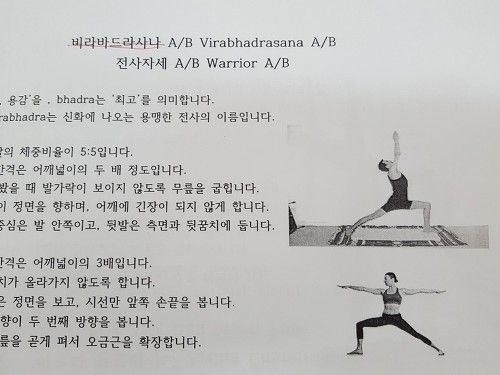 비라바드라사나 A/B Virabhadrasana A/B
전사자세 A/B Warrior A/B
, 용감'을 , bhadra는 '최고'를 의미합니다.
rabhadra는 신화에 나오는 용맹한 전사의 이름입니다.
발의 체중비율이 5:5입니다.
간격은 어깨넓이의 두 배 정도입니다.
봤을 때 발가락이 보이지 않도록 무릎을 굽힙니다.
이 정면을 향하며, 어깨에 긴장이 되지 않게 합니다.
중심은 발 안쪽이고, 뒷발은 측면과 뒷꿈치에 둡니다.
간격은 어깨넓이의 3배입니다.
치가 올라가지 않도록 합니다.
은 정면을 보고, 시선만 앞쪽 손끝을 봅니다.
향이 두 번째 방향을 봅니다.
릎을 곧게 펴서 오금근을 확장합니다.